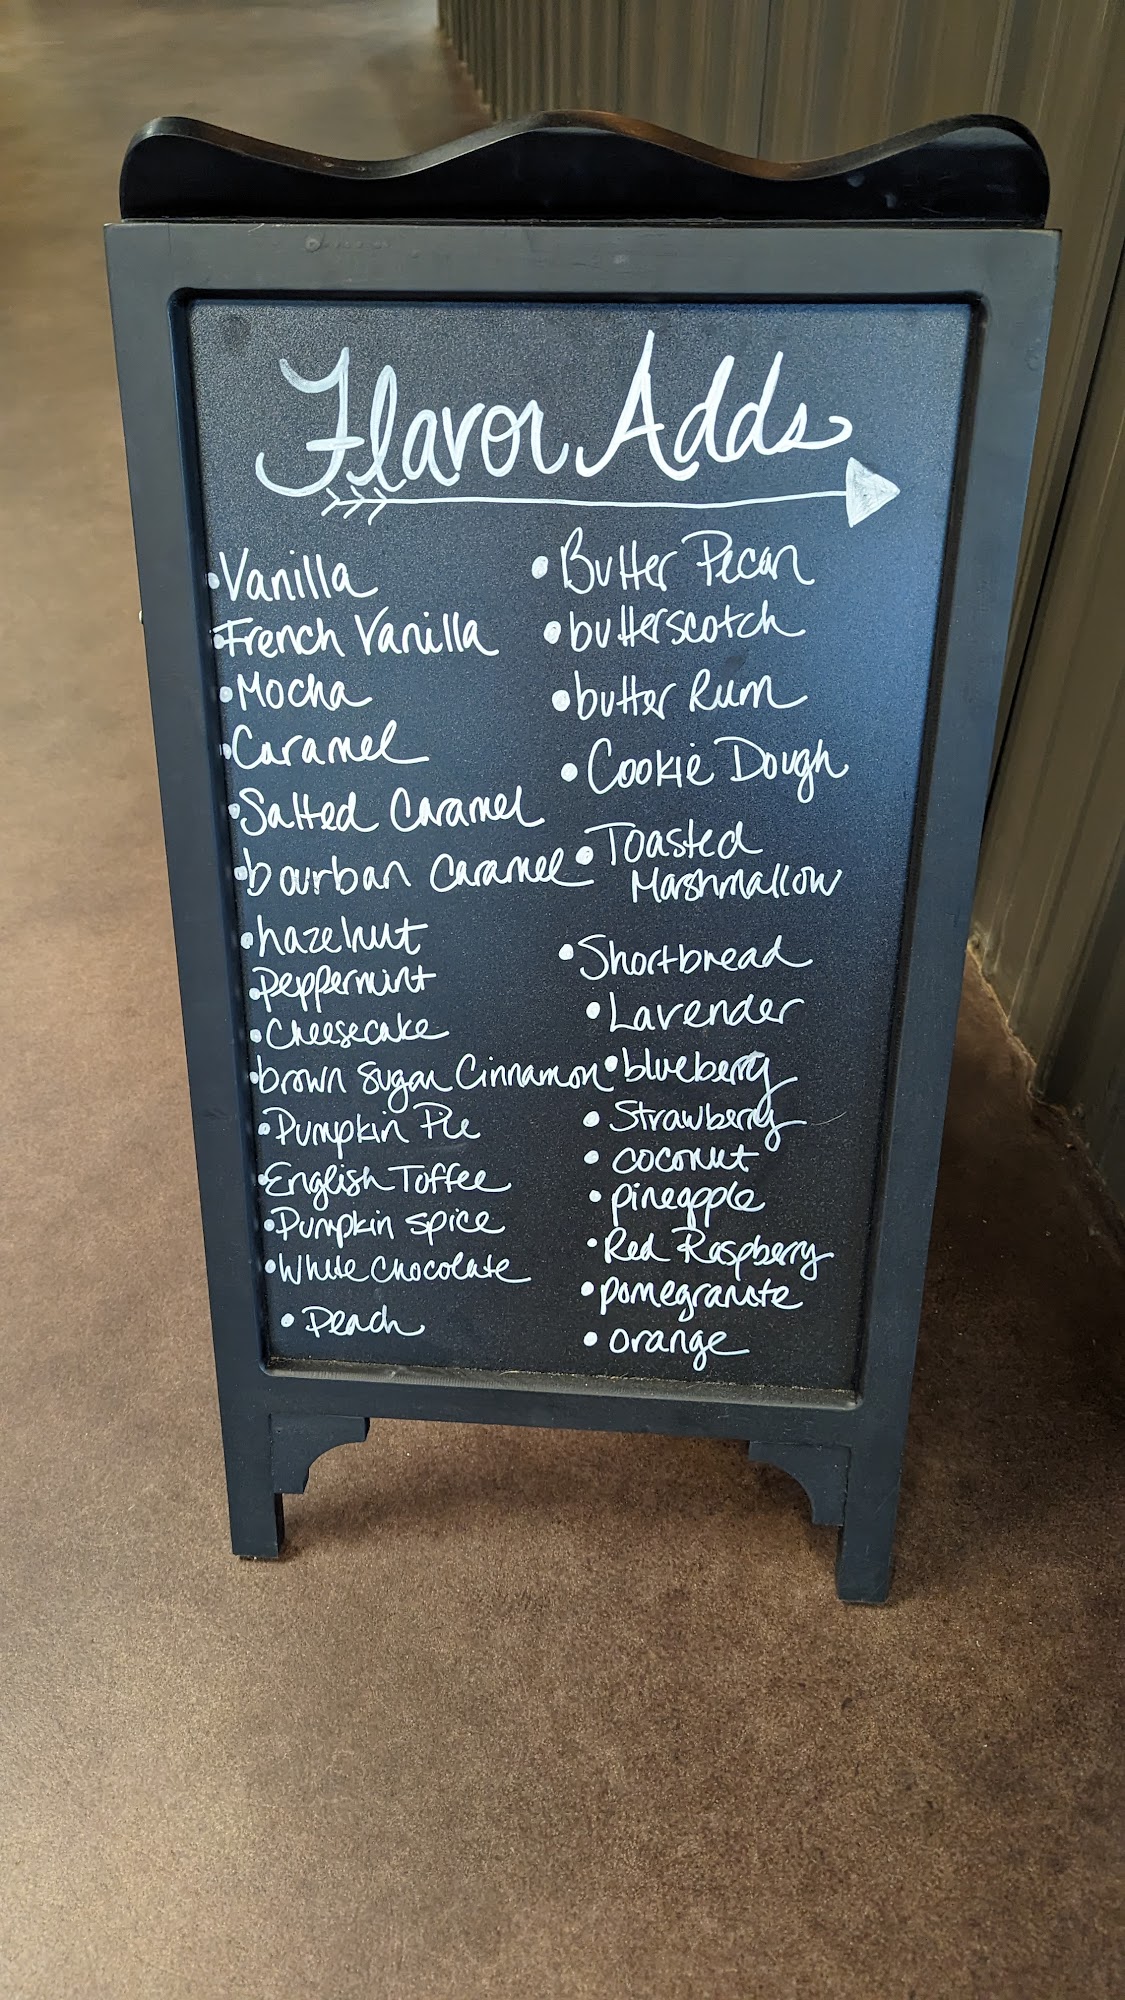 Flavor Adds
•Vanilla
•French Vanilla
•Mocha
•Caramel
•Salted Caramel
•bourban Caramel
•hazelnut
•peppermint
•Cheesecake
•brown sugar Cinnamon
•Pumpkin Pie
•English Toffee
•Pumpkin spice
•White Chocolate
• Peach
•Butter Pecan
•butterscotch
•butter Rum
•Cookie Dough
•Toasted
Marshmallow
•Shortbread
•Lavender
•blueberry
•Strawberry
•coconut
•pineapple
•Red Raspberry
•pomegranate
•orange